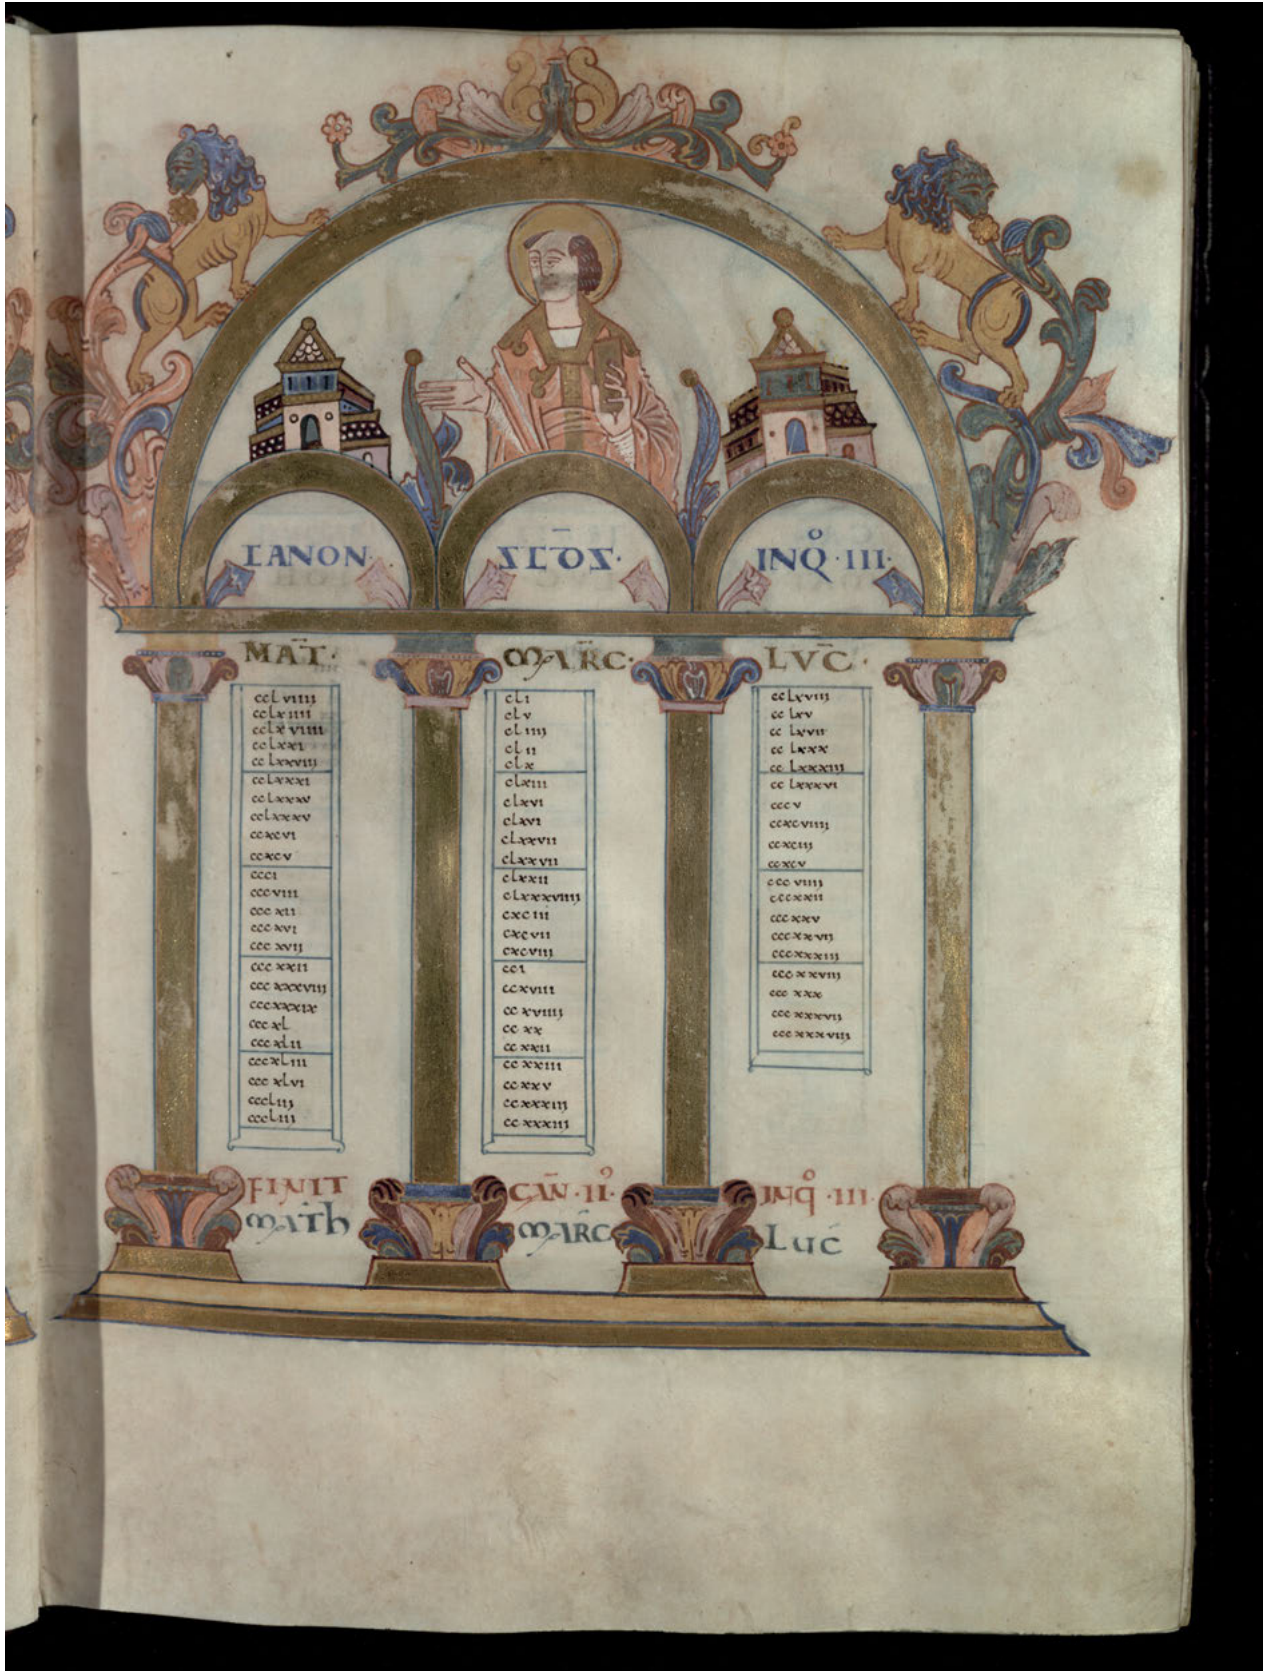 CANON· SCD̄S· INQo·III·
MAT̄· MAR̄C· LVC̄·
cclviiij
cclxiiii
cclxviiij
cclxxi
cclxxviij
cclxxxi
cclxxxv
cclxxxv
ccxcvi
ccxcv
ccci
cccviii
cccxii
cccxvi
cccxvij
cccxxii
cccxxxviij
cccxxxix
cccxl
cccxlii
cccxliii
cccxlvi
cccliij
cccliii
cli
clv
cliiij
clii
clx
clxiii
clxvi
clxvi
clxxvii
clxxvii
clxxii
clxxxviiij
cxciii
cxcvii
cxcviii
cci
ccxviii
ccxviiij
ccxx
ccxxii
ccxxiii
ccxxv
ccxxxiij
ccxxxiii
cclxviij
cclxv
cclxvii
cclxxx
cclxxxiij
cclxxxvi
cccv
ccxcviiij
ccxciij
ccxcv
cccviiij
cccxxii
cccxxv
cccxxvij
cccxxxiij
cccxxviij
cccxxx
cccxxxvij
cccxxxviij
FINIT CAN̄·II· INQo·III·
MAT̄h MAR̄C LuC̄